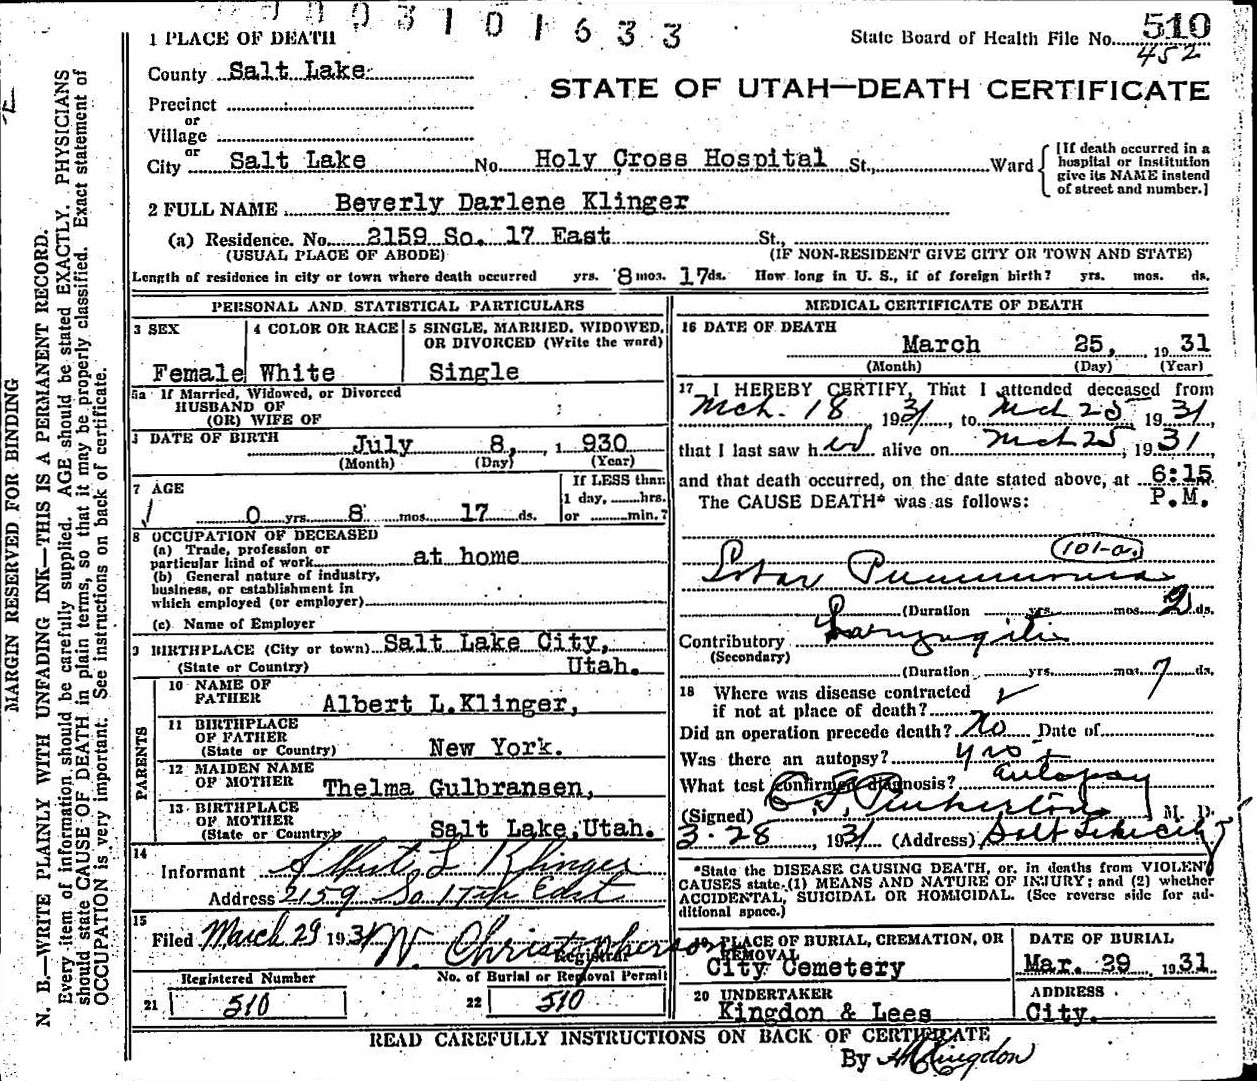 0003101633
1 PLACE OF DEATH
State Board of Health File No. 510
452
County Salt Lake
STATE OF UTAH—DEATH CERTIFICATE
Precinct
or
Village
or
City Salt Lake No. Holy Cross Hospital St., Ward
[If death occurred in a hospital or institution give its NAME instead of street and number.]
2 FULL NAME Beverly Darlene Klinger
(a) Residence. No. 2159 So. 17 East St.,
(USUAL PLACE OF ABODE) (IF NON-RESIDENT GIVE CITY OR TOWN AND STATE)
Length of residence in city or town where death occurred yrs. 8 mos. 17 ds. How long in U. S., if of foreign birth? yrs. mos. ds.
PERSONAL AND STATISTICAL PARTICULARS
3 SEX
Female
4 COLOR OR RACE
White
5 SINGLE, MARRIED, WIDOWED,
OR DIVORCED (Write the word)
Single
5a If Married, Widowed, or Divorced
HUSBAND OF
(OR) WIFE OF
DATE OF BIRTH July 8, 1930
(Month) (Day) (Year)
7 AGE
0 yrs. 8 mos. 17 ds.
If LESS than
1 day, hrs.
or min.?
8 OCCUPATION OF DECEASED
(a) Trade, profession or
particular kind of work at home
(b) General nature of industry,
business, or establishment in
which employed (or employer)
(c) Name of Employer
9 BIRTHPLACE (City or town) Salt Lake City,
(State or Country) Utah.
PARENTS
10 NAME OF
FATHER Albert L.Klinger,
11 BIRTHPLACE
OF FATHER
(State or Country) New York.
12 MAIDEN NAME
OF MOTHER Thelma Gulbransen,
13 BIRTHPLACE
OF MOTHER
(State or Country) Salt Lake,Utah.
14
Informant Albert L Klinger
Address 2159 So 17th East
15
Filed March 29 1931 W. Christopherson
Registrar
Registered Number
21 510
No. of Burial or Removal Permit
22 510
MEDICAL CERTIFICATE OF DEATH
16 DATE OF DEATH
March 25, 1931
(Month) (Day) (Year)
17 I HEREBY CERTIFY, That I attended deceased from
Mch. 18 1931, to Mch 25 1931
that I last saw her alive on Mch 25, 1931,
and that death occurred, on the date stated above, at 6:15
The CAUSE DEATH* was as follows: P.M.
101-a.
Lobar Pneumonia
(Duration yrs. mos. 2 ds.
Contributory Laryngitis
(Secondary)
(Duration yrs. mos. 7 ds.
18 Where was disease contracted
if not at place of death?
Did an operation precede death? No Date of
Was there an autopsy? yes
What test confirmed diagnosis? autopsy
(Signed) Pinkerton M. D.
3-28, 1931 (Address) Salt Lake City
*State the DISEASE CAUSING DEATH, or, in deaths from VIOLENT
CAUSES state (1) MEANS AND NATURE OF INJURY; and (2) whether
ACCIDENTAL, SUICIDAL OR HOMICIDAL. (See reverse side for ad-
ditional space.)
19 PLACE OF BURIAL, CREMATION, OR
REMOVAL
City Cemetery
DATE OF BURIAL
Mar. 29 1931
20 UNDERTAKER
Kingdon & Lees
ADDRESS
City.
READ CAREFULLY INSTRUCTIONS ON BACK OF CERTIFICATE
By Kingdon
MARGIN RESERVED FOR BINDING
N. B.—WRITE PLAINLY WITH UNFADING INK—THIS IS A PERMANENT RECORD.
Every item of information should be carefully supplied. AGE should be stated EXACTLY. PHYSICIANS
should state CAUSE OF DEATH in plain terms, so that it may be properly classified. Exact statement of
OCCUPATION is very important. See instructions on back of certificate.